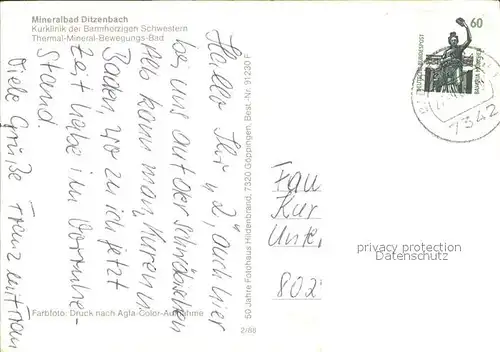 Mineralbad Ditzenbach
Kurklinik der Barmherzigen Schwestern
Thermal-Mineral-Bewegungs-Bad
Hallo Ihr 2, auch hier
bei uns auf der schwäbischen
Alb kann man Kuren u.
Baden, wozu ich jetzt
Zeit habe im Vorruhe-
stand.
Viele Grüße Franz mit Frau
Farbfoto: Druck nach Agfa-Color-Aufnahme
2/88
50 Jahre Fotohaus Hildenbrand, 7320 Göppingen, Best.-Nr. 91230 F
60
DEUTSCHE BUNDESPOST
BAVARIA MÜNCHEN
7342
Fau
Kur
Unte,
802
privacy protection
Datenschutz